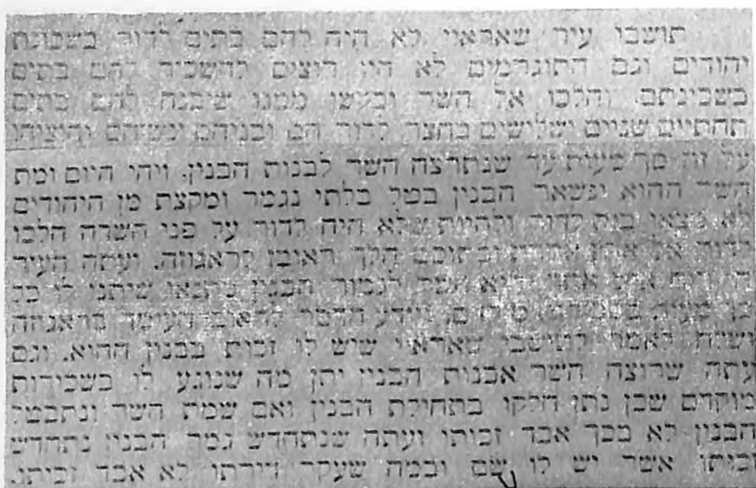 תושבי עיר שאראיי לא היה להם בתים לדור בשכונת
יהודים וגם התוגרמים לא היו רוצים להשכיר להם בתים
בשכונתם. והלכו אל השר ובקשו ממנו שיבנה להם בתים
תחתיים שניים ושלישים בחצר לדור הם ובניהם ונשיהם
על זה סך מעות עד שנתרצה השר לבנות הבנין. ויהי היום ומת
השר ההוא ונשאר הבנין בטל בלתי נגמר ומקצת מן היהודים
לא מצאו בית לדור ולהיות שלא היה לדור על פני השדה הלכו
לדור הלך ראובן לראגוזה. ועתה העיר
השר לגמור הבנין שיתנו לו כך
ונודע הדבר לראובן בראגוזה
ושלח לאמר לתושבי שאראיי שיש לו זכות בבנין ההוא. וגם
עתה שרוצה השר לבנות הבנין יתן מה שנוגע לו בשכירות
מוקדם שכן נתן חלקו בתחילת הבנין ואם שמת השר ונתבטל
הבנין לא מפני כך אבד זכותו ועתה שנתחדש גמר הבנין נתחדש
זכותו אשר יש לו שם ובמה שעקר דירתו לא אבד זכותו.